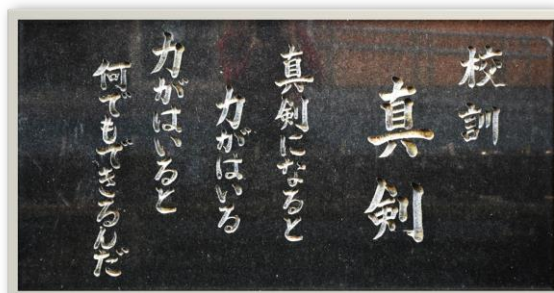 校訓
真剣
真剣になると
力がはいる
力がはいると
何でもできるんだ